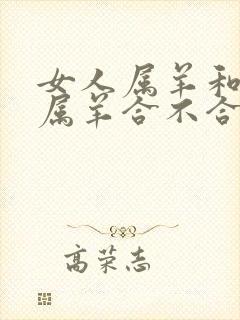 女人属羊和
属羊合不合
高荣志